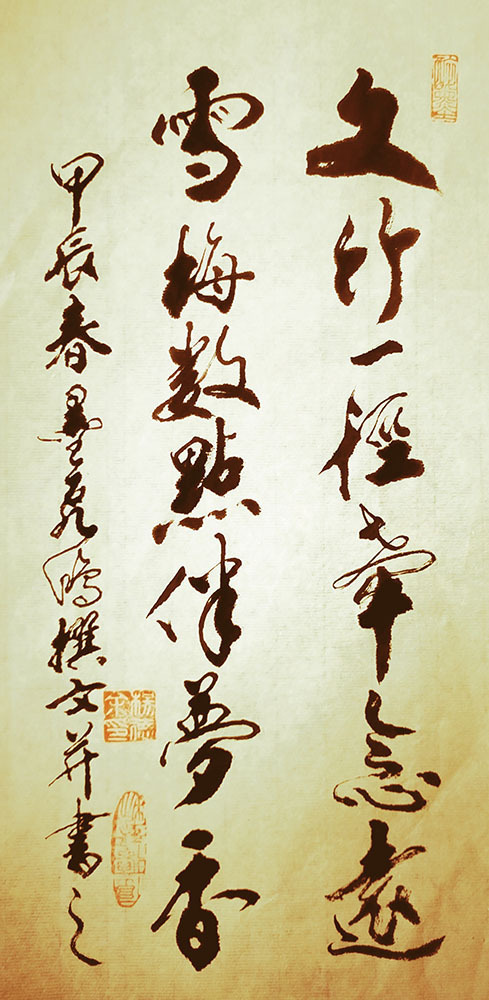 文竹一徑牽念遠
雪梅数點伴夢香
甲辰春墨鴻撰文并書之